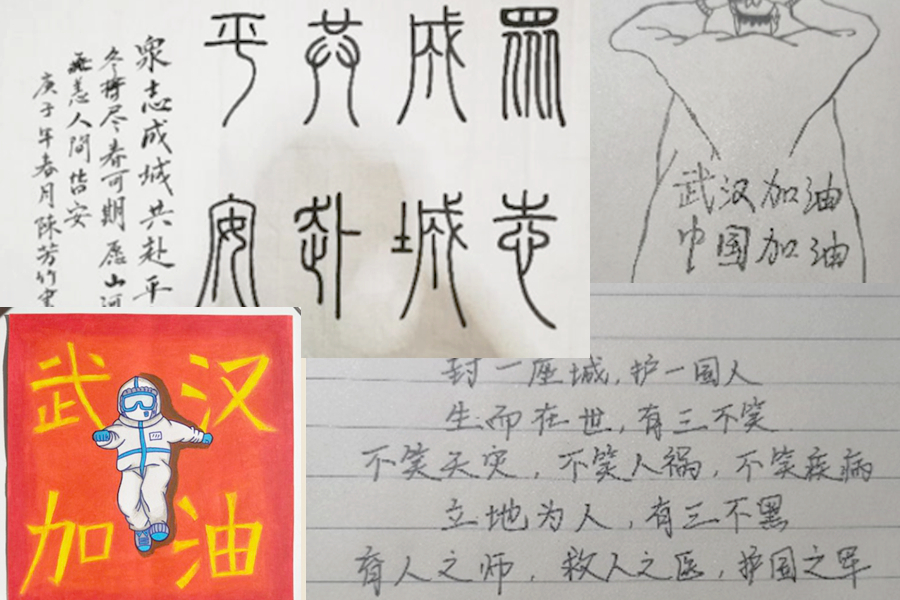 眾志
成城
共赴
平安
衆志成城共赴平
冬将尽春可期愿山河
无恙人间皆安
庚子年春月陈芳竹书
武汉加油
中国加油
武汉
加油
封一座城,护一国人
生而在世,有三不笑
不笑天灾,不笑人祸,不笑疾病
立地为人,有三不黑
育人之师,救人之医,护国之军